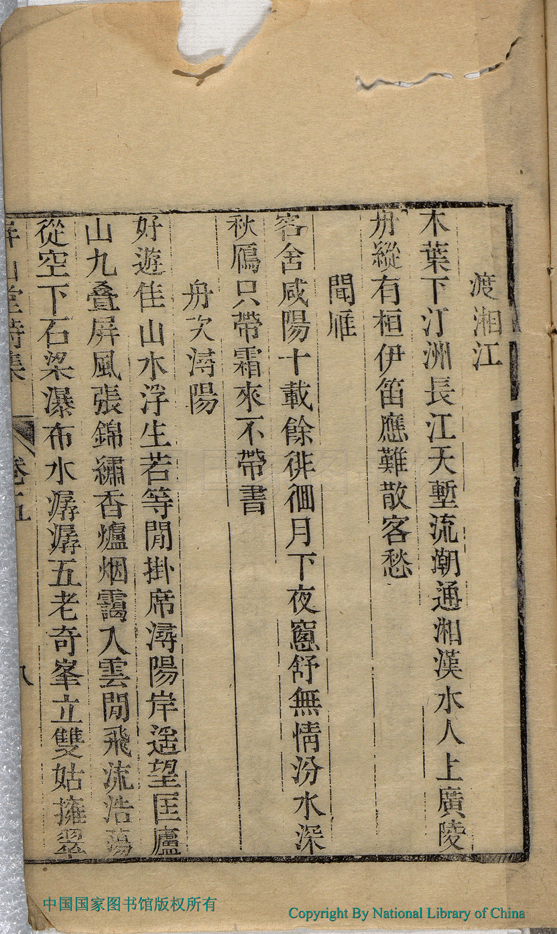 渡湘江
木葉下汀洲長江天塹流潮通湘漢水人上廣陵
舟縱有桓伊笛應難散客愁
聞雁
客舍咸陽十載餘徘徊月下夜窻舒無情汾水深
秋鴈只帶霜來不帶書
舟次潯陽
好遊佳山水浮生若等閒掛席潯陽岸遥望匡廬
山九叠屏風張錦繡香爐烟靄入雲閒飛流浩蕩
從空下石梁瀑布水潺潺五老奇峯立雙姑擁翠
山堂詩集
卷五
八
中国国家图书馆版权所有
Copyright By National Library of China